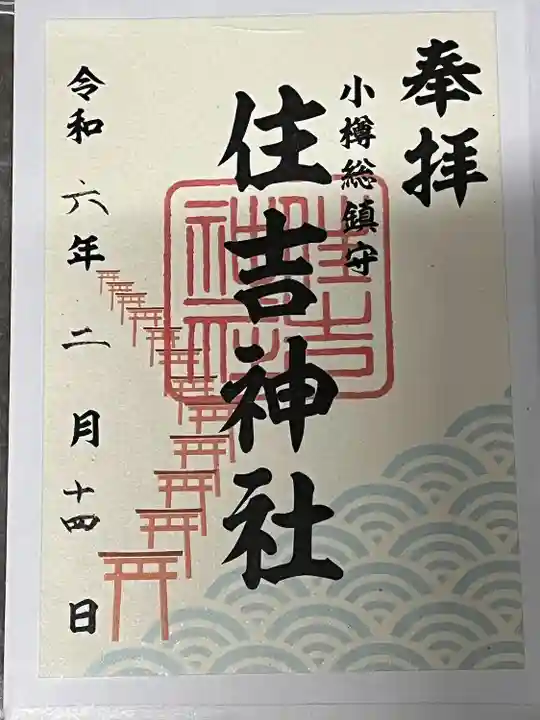 奉拝
小樽総鎮守
住吉神社
住吉神社
令和六年二月十四日